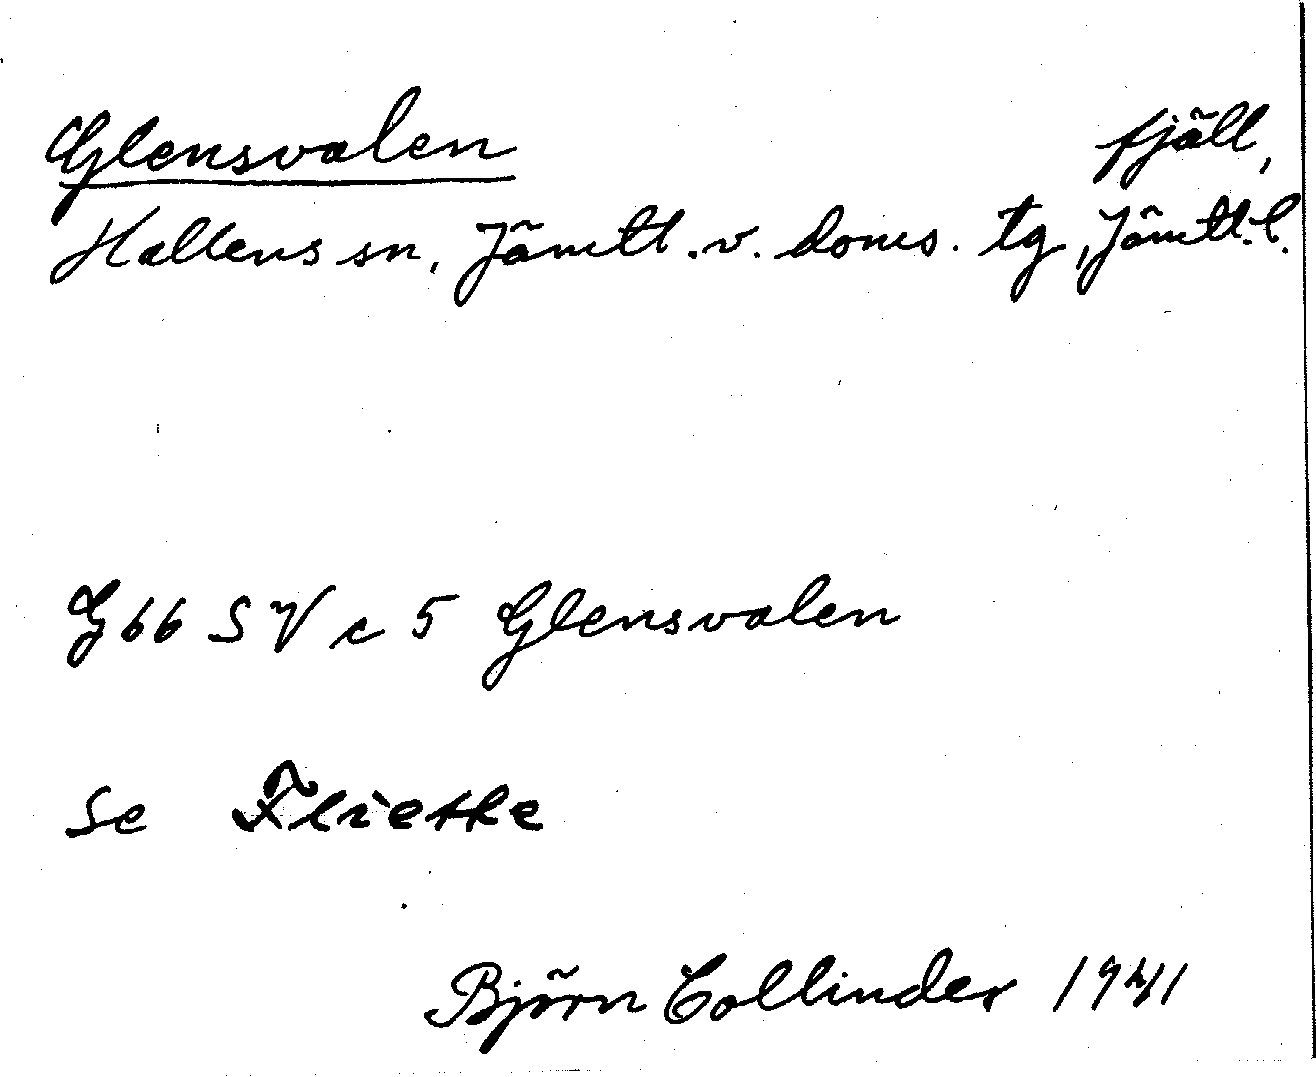 Glensvalen fjäll,
Hallens sn, Jämtl. v. doms. tg, Jämtl. l.
G 66 SV c 5 Glensvalen
Se Fliethe
Björn Collinder 1941